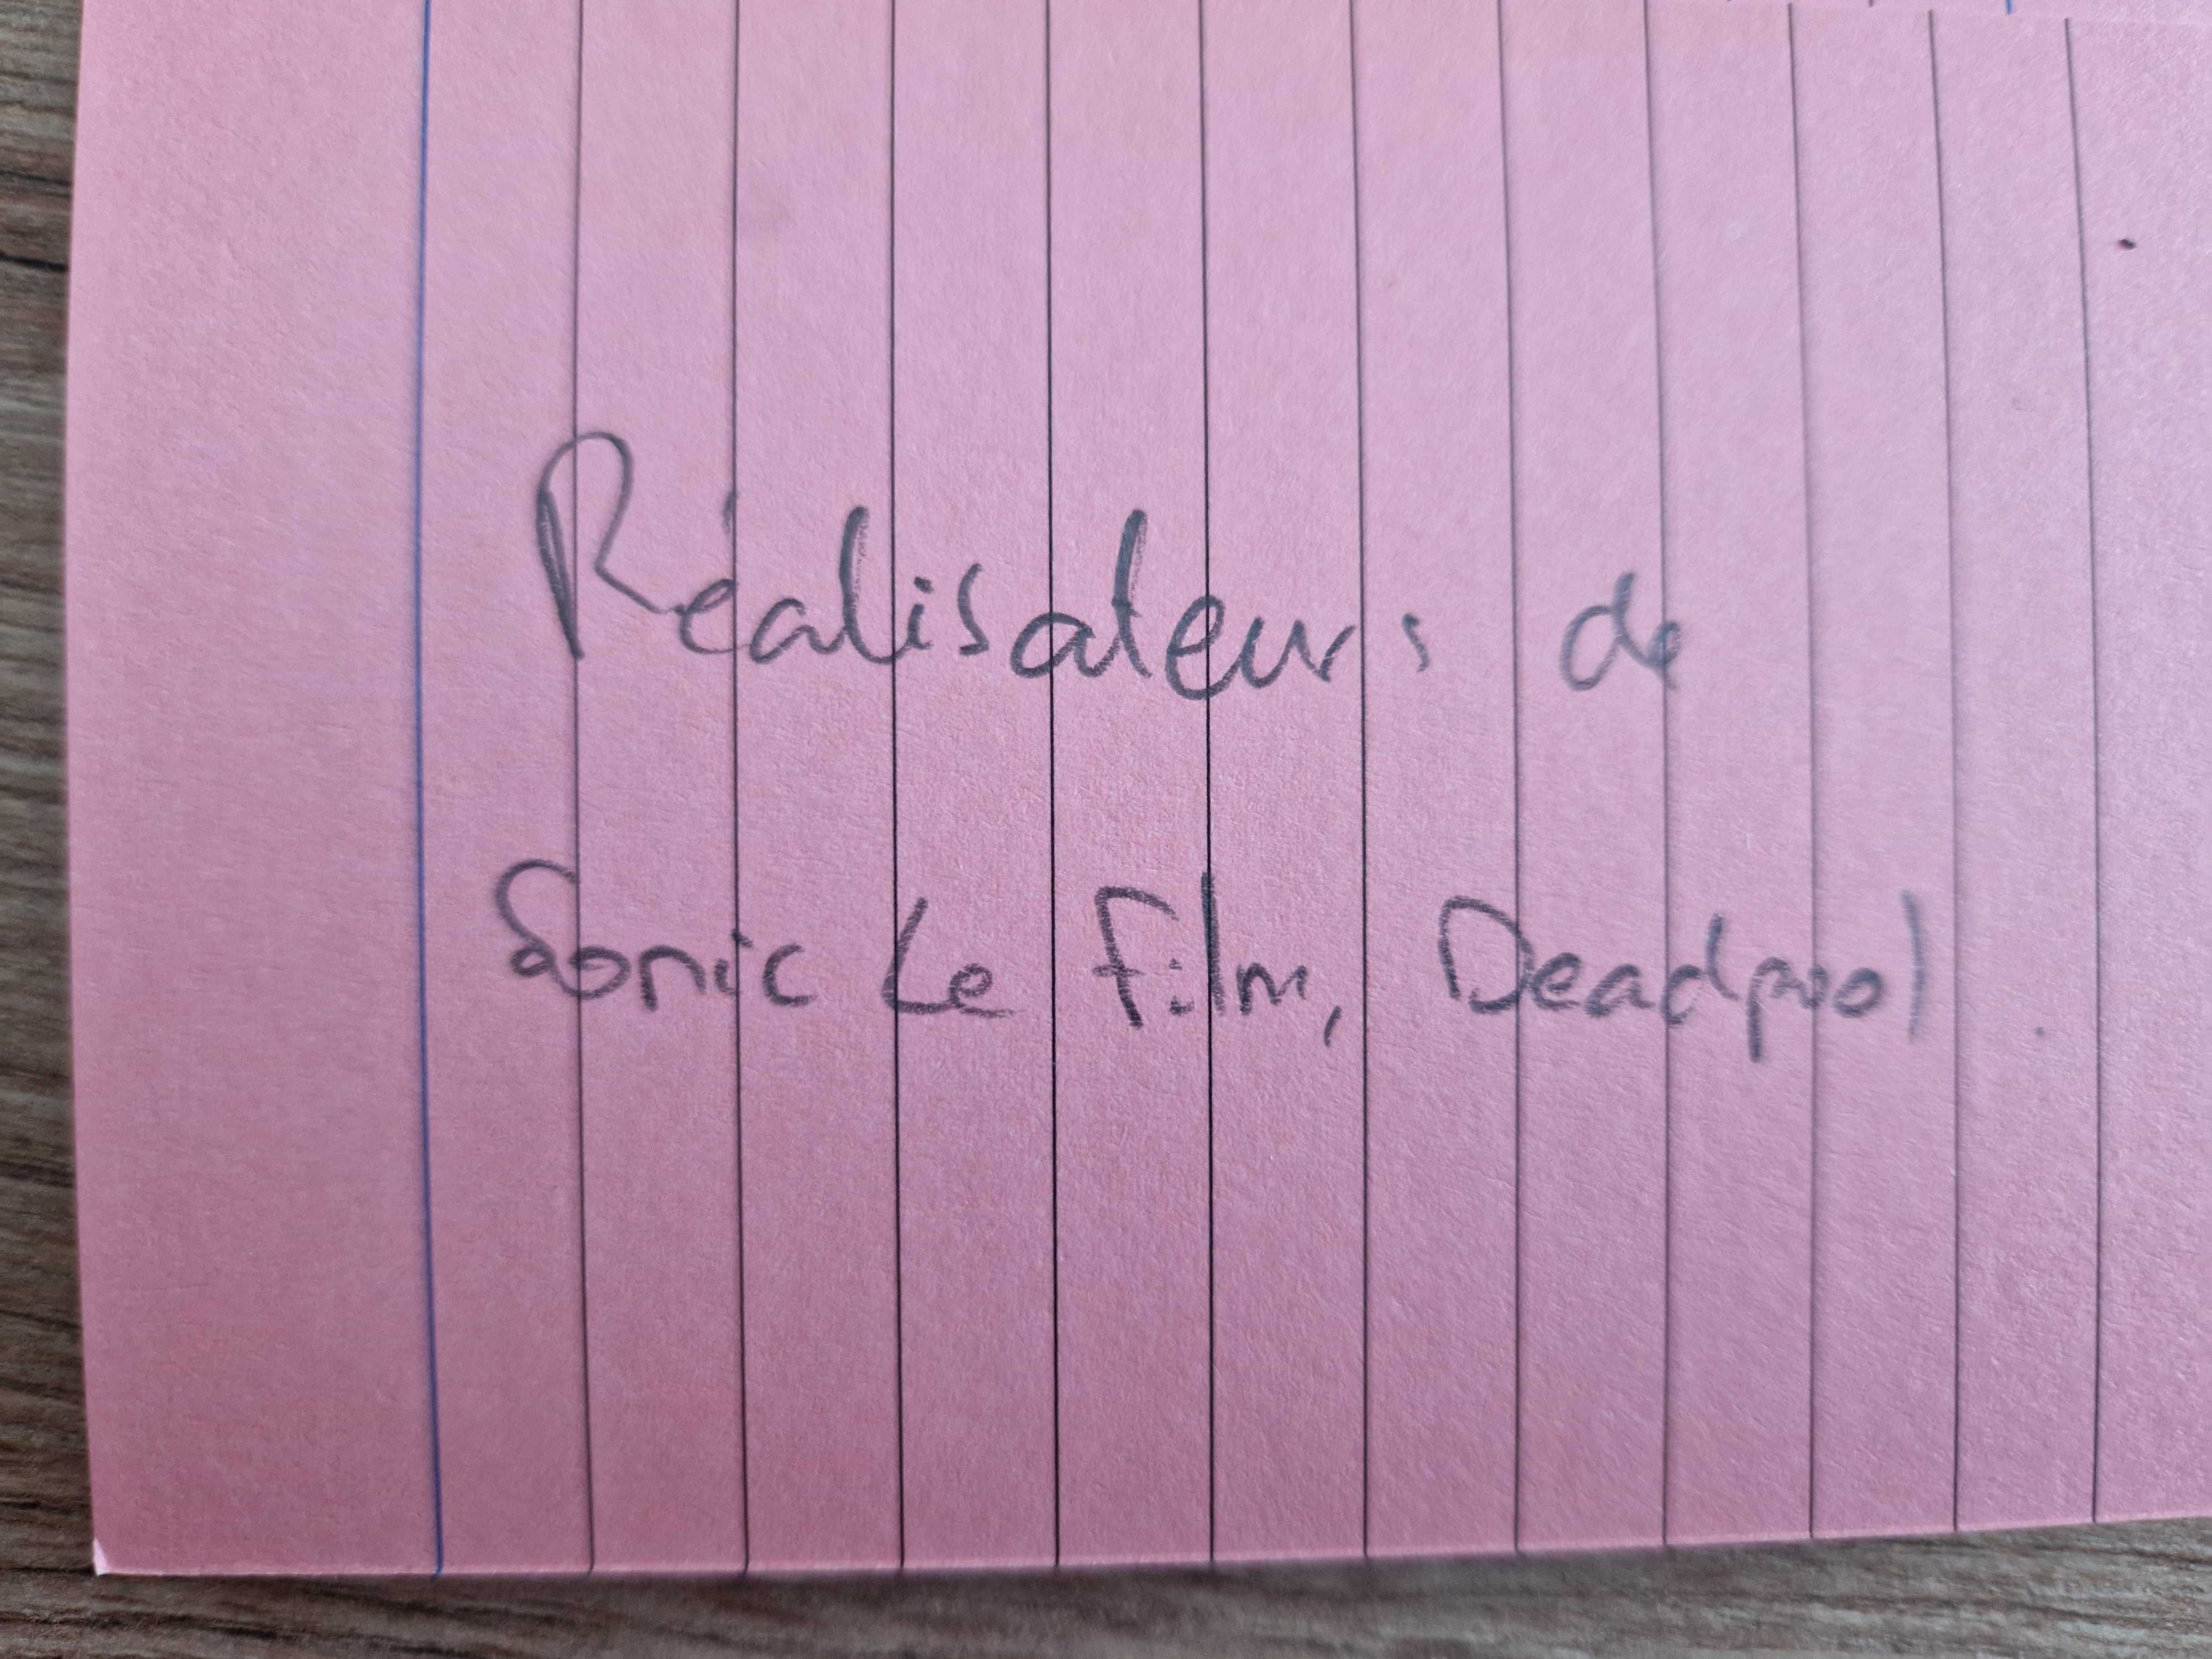 Réalisateurs de
Sonic Le Film, Deadpool